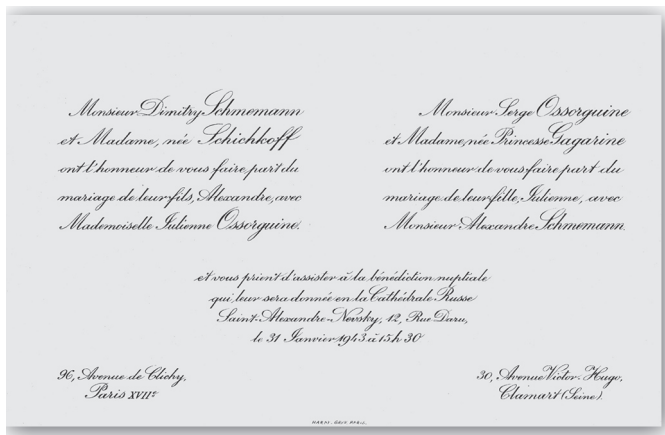 Monsieur Dimitry Schmemann
et Madame, née Schichkoff
ont l'honneur de vous faire part du
mariage de leur fils, Alexandre, avec
Mademoiselle Julienne Ossorguine.
Monsieur Serge Ossorguine
et Madame, née Princesse Gagarine
ont l'honneur de vous faire part du
mariage de leur fille, Julienne, avec
Monsieur Alexandre Schmemann.
et vous prient d'assister à la bénédiction nuptiale
qui leur sera donnée en la Cathédrale Russe
Saint-Alexandre-Newsky, 12, Rue Daru,
le 31 Janvier 1943 à 15h 30
96, Avenue de Clichy,
Paris XVIIe
30, Avenue Victor-Hugo,
Clamart (Seine).